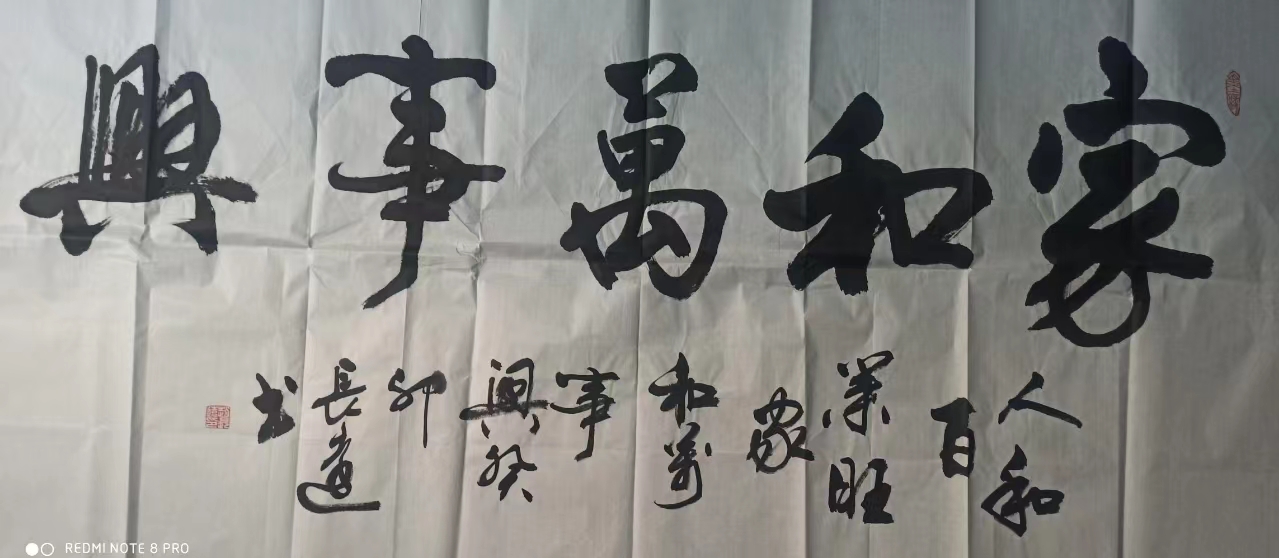 家和萬事興
人和
百
業旺
家
和萬
事
興癸
卯
長遠
书
REDMI NOTE 8 PRO